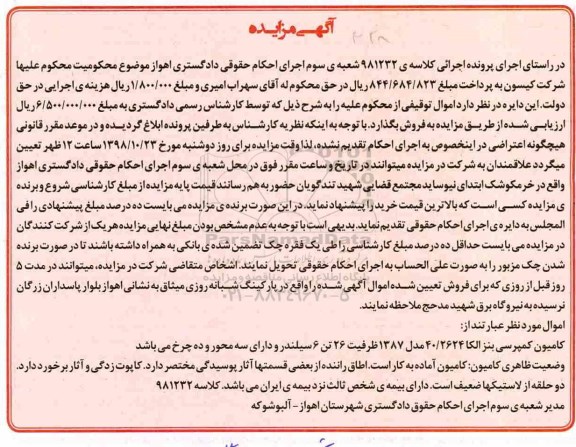 آگهی مزایده
در راستای اجرای پرونده اجرائی کلاسه ی ۹۸۱۲۳۲ شعبه ی سوم اجرای احکام حقوقی دادگستری اهواز موضوع محکومیت محکوم علیها
شرکت کیسون به پرداخت مبلغ ۸۴۴/۶۸۴/۸۲۳ ریال در حق محکوم له آقای سهراب امیری و مبلغ ۱/۸۰۰/۰۰۰ ریال هزینه ی اجرایی در حق
دولت. این دایره در نظر دارد اموال توقیفی از محکوم علیه را به شرح ذیل که توسط کارشناس رسمی دادگستری به مبلغ ۶/۵۰۰/۰۰۰/۰۰۰ ریال
ارزیابی شده از طریق مزایده به فروش بگذارد. با توجه به اینکه نظریه کارشناس به طرفین پرونده ابلاغ گردیده و در موعد مقرر قانونی
هیچگونه اعتراضی در اینخصوص به اجرای احکام تقدیم نشده، لذا وقت مزایده برای روز دوشنبه مورخ ۱۳۹۸/۱۰/۲۳ ساعت ۱۲ ظهر تعیین
میگردد علاقمندان به شرکت در مزایده میتوانند در تاریخ و ساعت مقرر فوق در محل شعبه ی سوم اجرای احکام حقوقی دادگستری اهواز
واقع در خرمکوشک ابتدای نیوساید مجتمع قضایی شهید تندگویان حضور به هم رسانند قیمت پایه مزایده از مبلغ کارشناسی شروع و برنده
ی مزایده کسی است که بالاترین قیمت خرید را پیشنهاد نماید. در این صورت برنده ی مزایده می بایست ده درصد مبلغ پیشنهادی را فی
المجلس به دایره ی اجرای احکام حقوقی تقدیم نماید. بدیهی است با توجه به عدم مشخص بودن مبلغ نهایی مزایده هر یک از شرکت کنندگان
در مزایده می بایست حداقل ده درصد مبلغ کارشناسی را طی یک فقره چک تضمین شده ی بانکی به همراه داشته باشند تا در صورت برنده
شدن چک مزبور را به صورت علی الحساب به اجرای احکام حقوقی تحویل نمایند. اشخاص متقاضی شرکت در مزایده، میتوانند در مدت ۵
روز قبل از روزی که برای فروش تعیین شده اموال آگهی شده را واقع در پارکینگ شبانه روزی میثاق به نشانی اهواز بلوار پاسداران زرگان
نرسیده به نیروگاه برق شهید مدحج ملاحظه نمایند.
اموال مورد نظر عبارتند از:
کامیون کمپرسی بنز الکا ۴۰/۲۶۲۴ مدل ۱۳۸۷ ظرفیت ۲۶ تن ۶ سیلندر و دارای سه محور و ده چرخ می باشد
وضعیت ظاهری کامیون: کامیون آماده به کار است. اطاق راننده از بعضی قسمتها آثار پوسیدگی مختصر دارد. کاپوت زدگی و آثار برخورد دارد.
دو حلقه از لاستیکها ضعیف است. دارای بیمه ی شخص ثالث نزد بیمه ی ایران می باشد. کلاسه ۹۸۱۲۳۲
مدیر شعبه ی سوم اجرای احکام حقوق دادگستری شهرستان اهواز - آلبوشوکه
۰۲۱-۸۸۳۴۹۶۷۰-۵